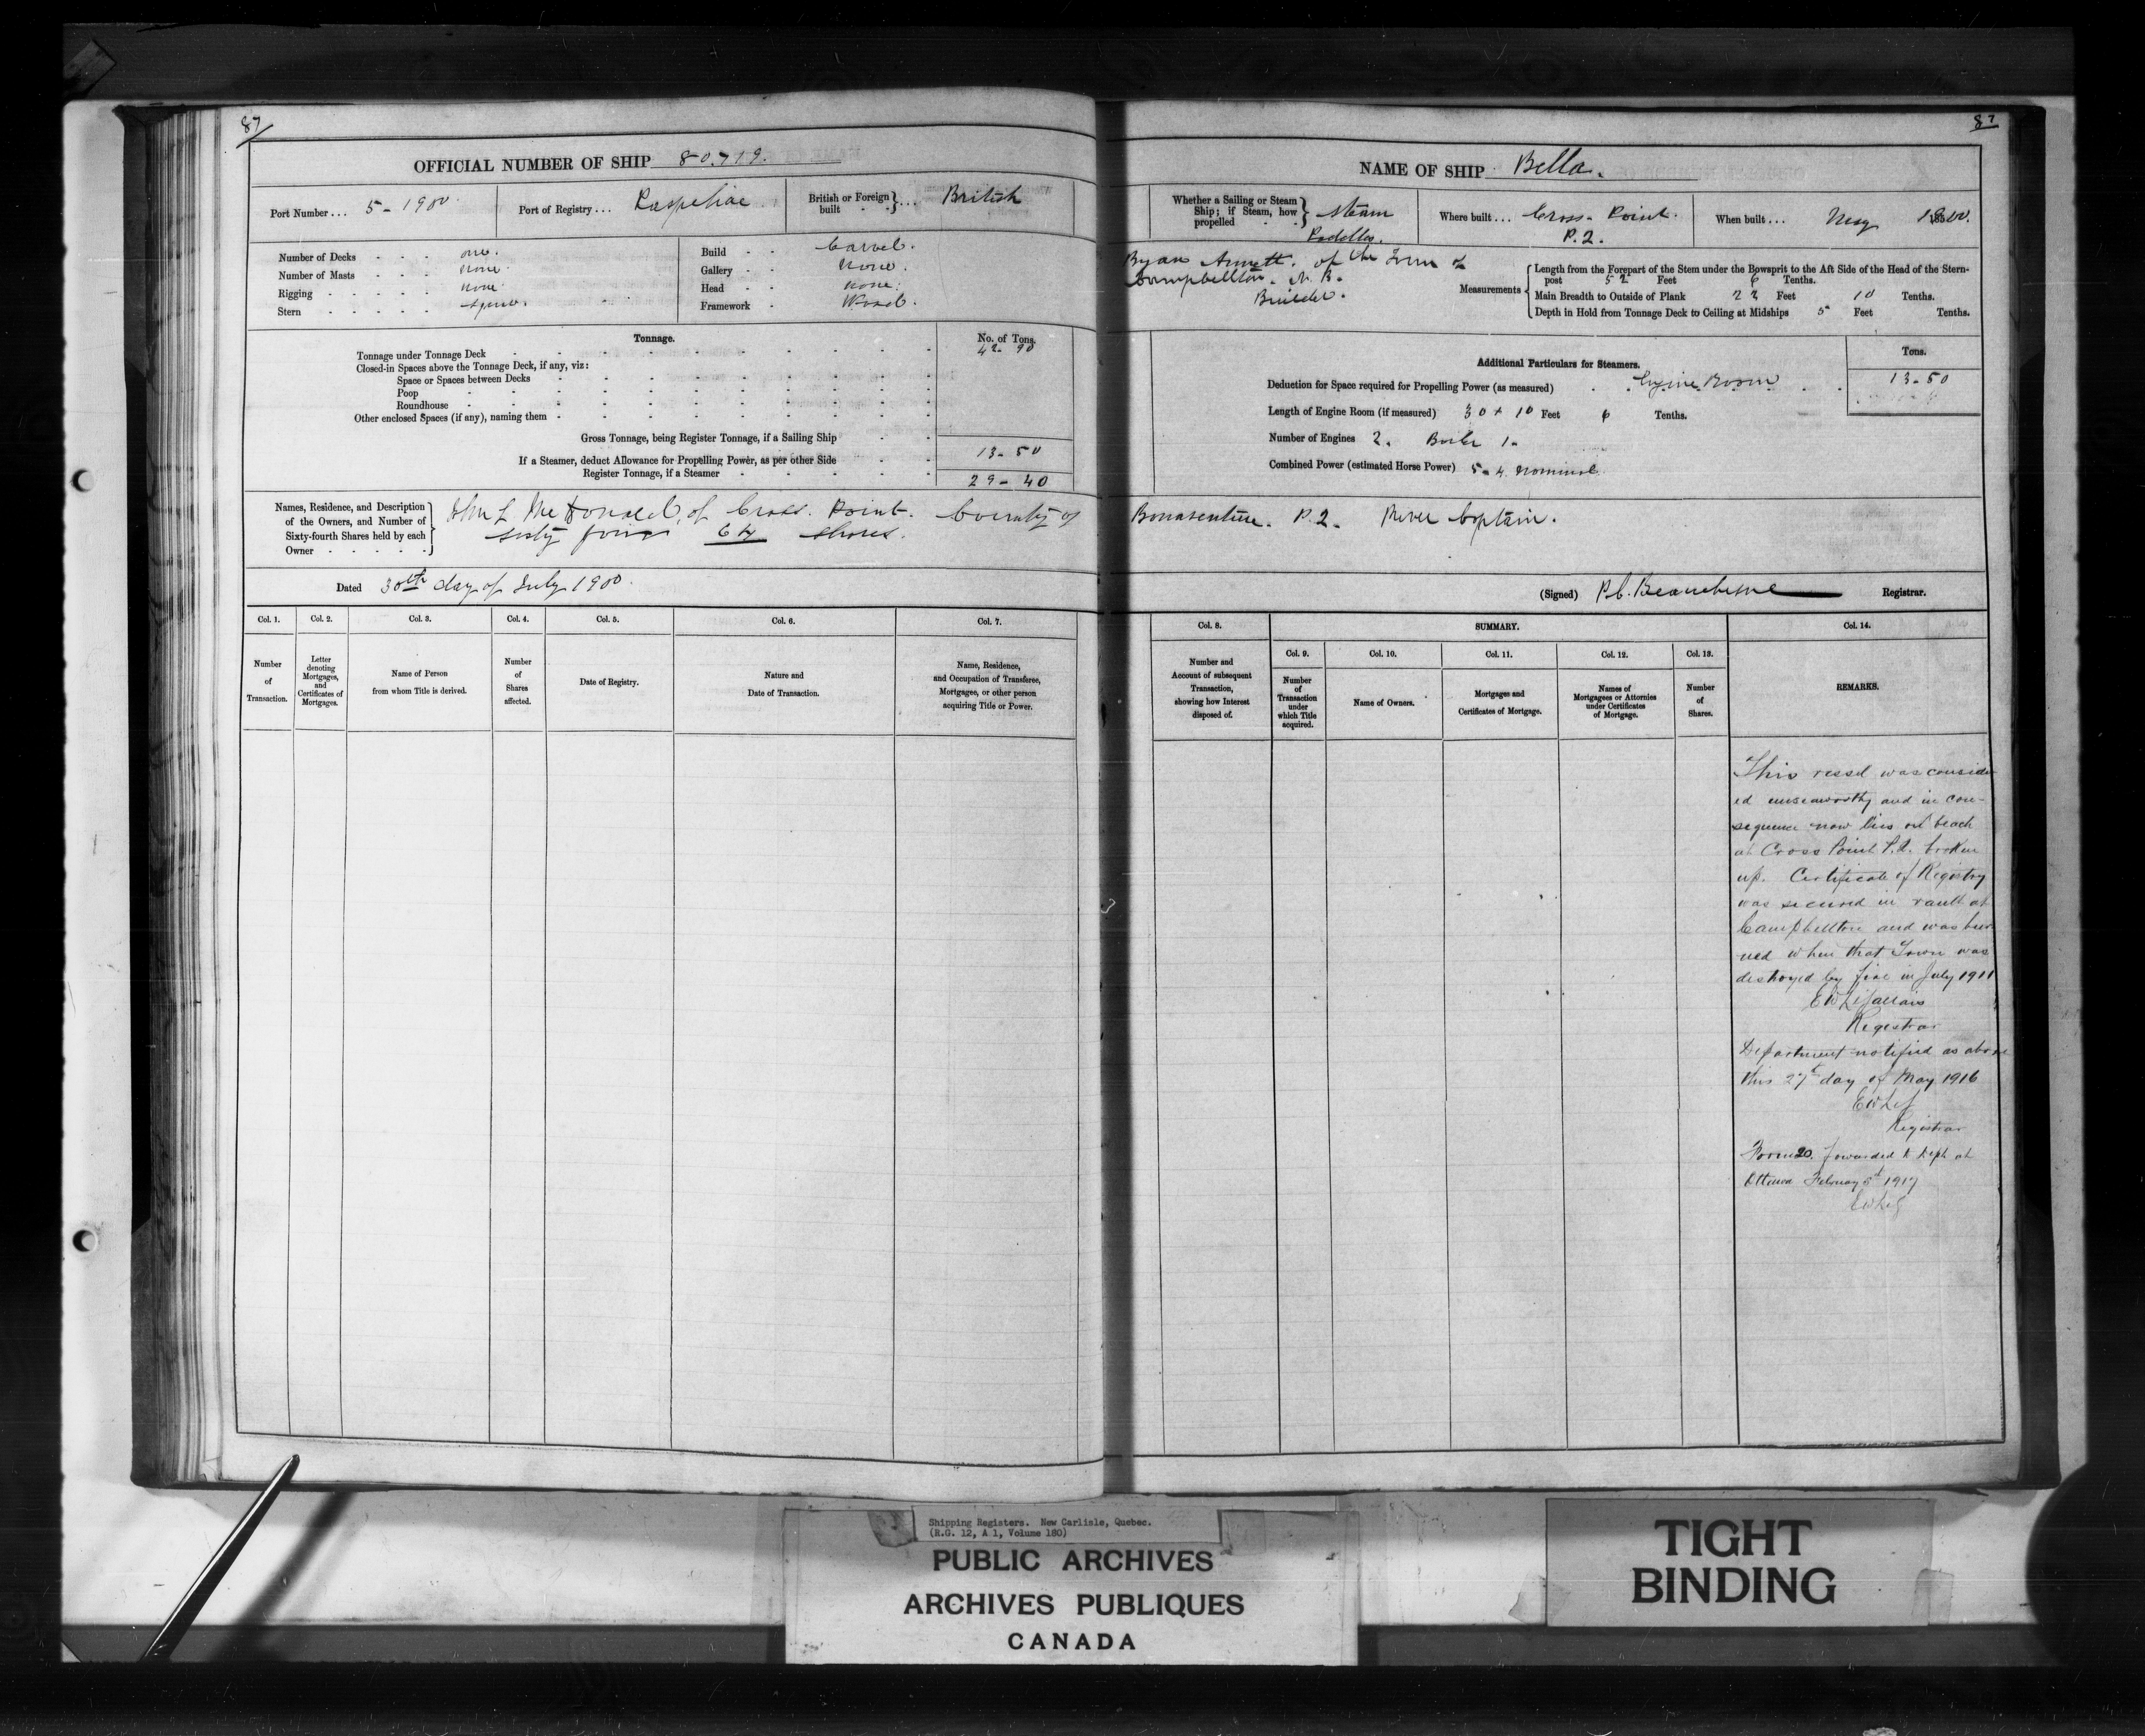 87
87
OFFICIAL NUMBER OF SHIP 80.719.
NAME OF SHIP Bella.
Port Number... 5-1900
Port of Registry... Paspebiac
British or Foreign built } ... British
Whether a Sailing or Steam Ship; if Steam, how propelled } Steam Paddles.
Where built... Cross-Point. P.Q.
When built... May 1900.
Number of Decks one.
Number of Masts none.
Rigging none.
Stern square.
Build Carvel.
Gallery None.
Head none.
Framework Wood.
Byan Annett. of the Town of
Campbellton. N.B.
Builder.
Measurements
Length from the Forepart of the Stem under the Bowsprit to the Aft Side of the Head of the Stern-
post 52 Feet 6 Tenths.
Main Breadth to Outside of Plank 23 Feet 10 Tenths.
Depth in Hold from Tonnage Deck to Ceiling at Midships 5 Feet Tenths.
Tonnage.
No. of Tons.
Tonnage under Tonnage Deck 42-90
Closed-in Spaces above the Tonnage Deck, if any, viz:
Space or Spaces between Decks
Poop
Roundhouse
Other enclosed Spaces (if any), naming them
Gross Tonnage, being Register Tonnage, if a Sailing Ship
If a Steamer, deduct Allowance for Propelling Power, as per other Side 13-50
Register Tonnage, if a Steamer 29-40
Additional Particulars for Steamers.
Tons.
Deduction for Space required for Propelling Power (as measured) Engine Room 13-50
Length of Engine Room (if measured) 30 + 10 Feet 6 Tenths.
Number of Engines 2. Boiler 1.
Combined Power (estimated Horse Power) 5-4 nominal
Names, Residence, and Description of the Owners, and Number of Sixty-fourth Shares held by each Owner
John L. McDonald, of Cross. Point. County of Bonaventure. P.Q. River Captain.
sixty four 64 shares.
Dated 30th day of July 1900.
(Signed) P.C. Beauchesne Registrar.
Col. 1.
Number of Transaction.
Col. 2.
Letter denoting Mortgages, and Certificates of Mortgages.
Col. 3.
Name of Person from whom Title is derived.
Col. 4.
Number of Shares affected.
Col. 5.
Date of Registry.
Col. 6.
Nature and Date of Transaction.
Col. 7.
Name, Residence, and Occupation of Transferee, Mortgagee, or other person acquiring Title or Power.
Col. 8.
Number and Account of subsequent Transaction, showing how Interest disposed of.
SUMMARY.
Col. 9.
Number of Transaction under which Title acquired.
Col. 10.
Name of Owners.
Col. 11.
Mortgages and Certificates of Mortgage.
Col. 12.
Names of Mortgagees or Attornies under Certificates of Mortgage.
Col. 13.
Number of Shares.
Col. 14.
REMARKS.
This vessel was consider-
ed unseaworthy and in con-
sequence now lies on beach
at Cross Point P.Q. broken
up. Certificate of Registry
was secured in vault at
Campbellton and was bur-
ned when that Town was
destroyed by fire in July 1911
E W LeGallais
Registrar
Department notified as above
this 27th day of May 1916
EWLeG
Registrar
Form 20. forwarded to Dept at
Ottawa February 5th 1917
EWLeG
Shipping Registers. New Carlisle, Quebec.
(R.G. 12, A 1, Volume 180)
PUBLIC ARCHIVES
ARCHIVES PUBLIQUES
CANADA
TIGHT
BINDING